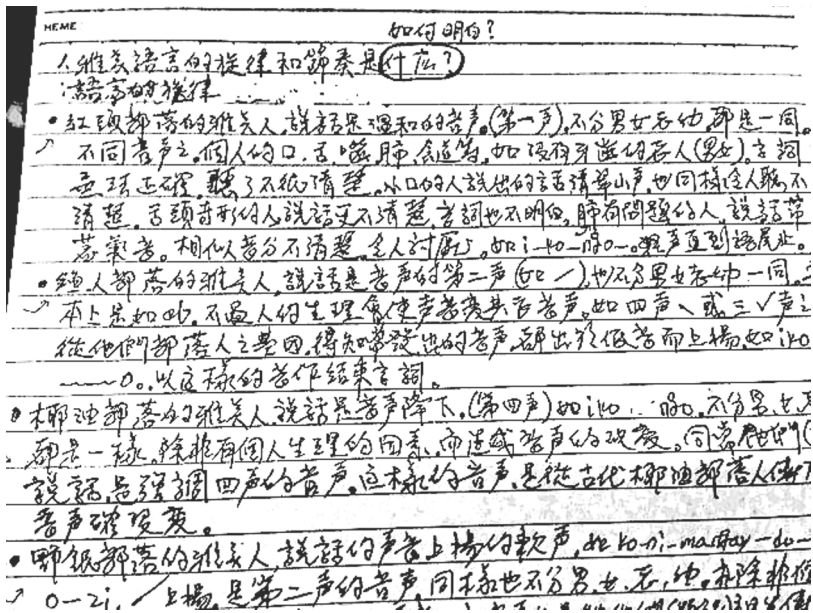 MEME
如何明白?
1. 雅美語言的旋律和節奏是什広?
:語言的旋律
• 紅頭部落的雅美人,說話是溫和的音声。(第一声),不分男女老幼,都是一同。
不同音声之,個人的口、舌、喉、肺,會造為,如沒有牙齒的老人(男女),言詞
正確,聽了不很清楚。的人說出的言語清單小声,也同樣令人聽不
清楚。舌頭奇形的人,說話更不清楚,言詞也不明白,肺有問題的人,說話帶
著氣音。相似音分不清楚,令人討厭。如 i-ko-ngo-。声直到語尾止。
• 部落的雅美人,說話是音声的第二声(如 ノ),也不分男女老幼一同。
本上是如此,不過人的生理會使声音變其它音声,如四声 \ 或三 V 声之
從他們部落人之基因,得知常發出的音声,都出於低音而上揚,如 iko
~~~~o。以這樣的音作結束言詞。
• 椰油部落的雅美人,說話是音声降下,(第四声)如 iko...ngo。不分男、女、
都是一樣。除非有個人生理的因素,而造成音声的改變。同常他們
說話,是強調四声的音声。這樣的音声,是從古代椰油部落人傳下
音声確變。
• 野銀部落的雅美人,說話的声音上揚的軟声,如 ko-ni-mangay-do-
o-zi, ノ 上揚,是第二声的音声,同樣也不分男、女、老、幼。除非個